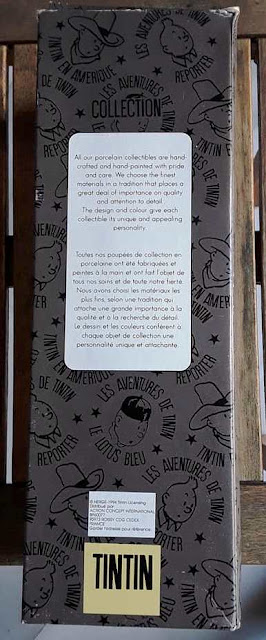 LES AVENTURES DE TINTIN
TINTIN EN AMERIQUE
REPORTER
COLLECTION
All our porcelain collectibles are hand-
crafted and hand-painted with pride
and care. We choose the finest
materials in a tradition that places a
great deal of importance on quality
and attention to detail
The design and colour give each
collectible its unique and appealing
personality.
Toutes nos poupées de collection en
porcelaine ont été fabriquées et
peintes à la main et ont fait l'objet de
tous nos soins et de toute notre fierté.
Nous avons choisi les matériaux les
plus fins, selon une tradition qui
attache une grande importance à la
qualité et à la recherche du détail.
Le dessin et les couleurs confèrent à
chaque objet de collection une
personnalité unique et attachante.
LES AVENTURES DE TINTIN
LOTUS BLEU
REPORTER
© HERGE 1994 Tintin Licensing
Distribué par
ACTION CONCEPT INTERNATIONAL
ROISSY CDG CEDEX
FRANCE
TINTIN